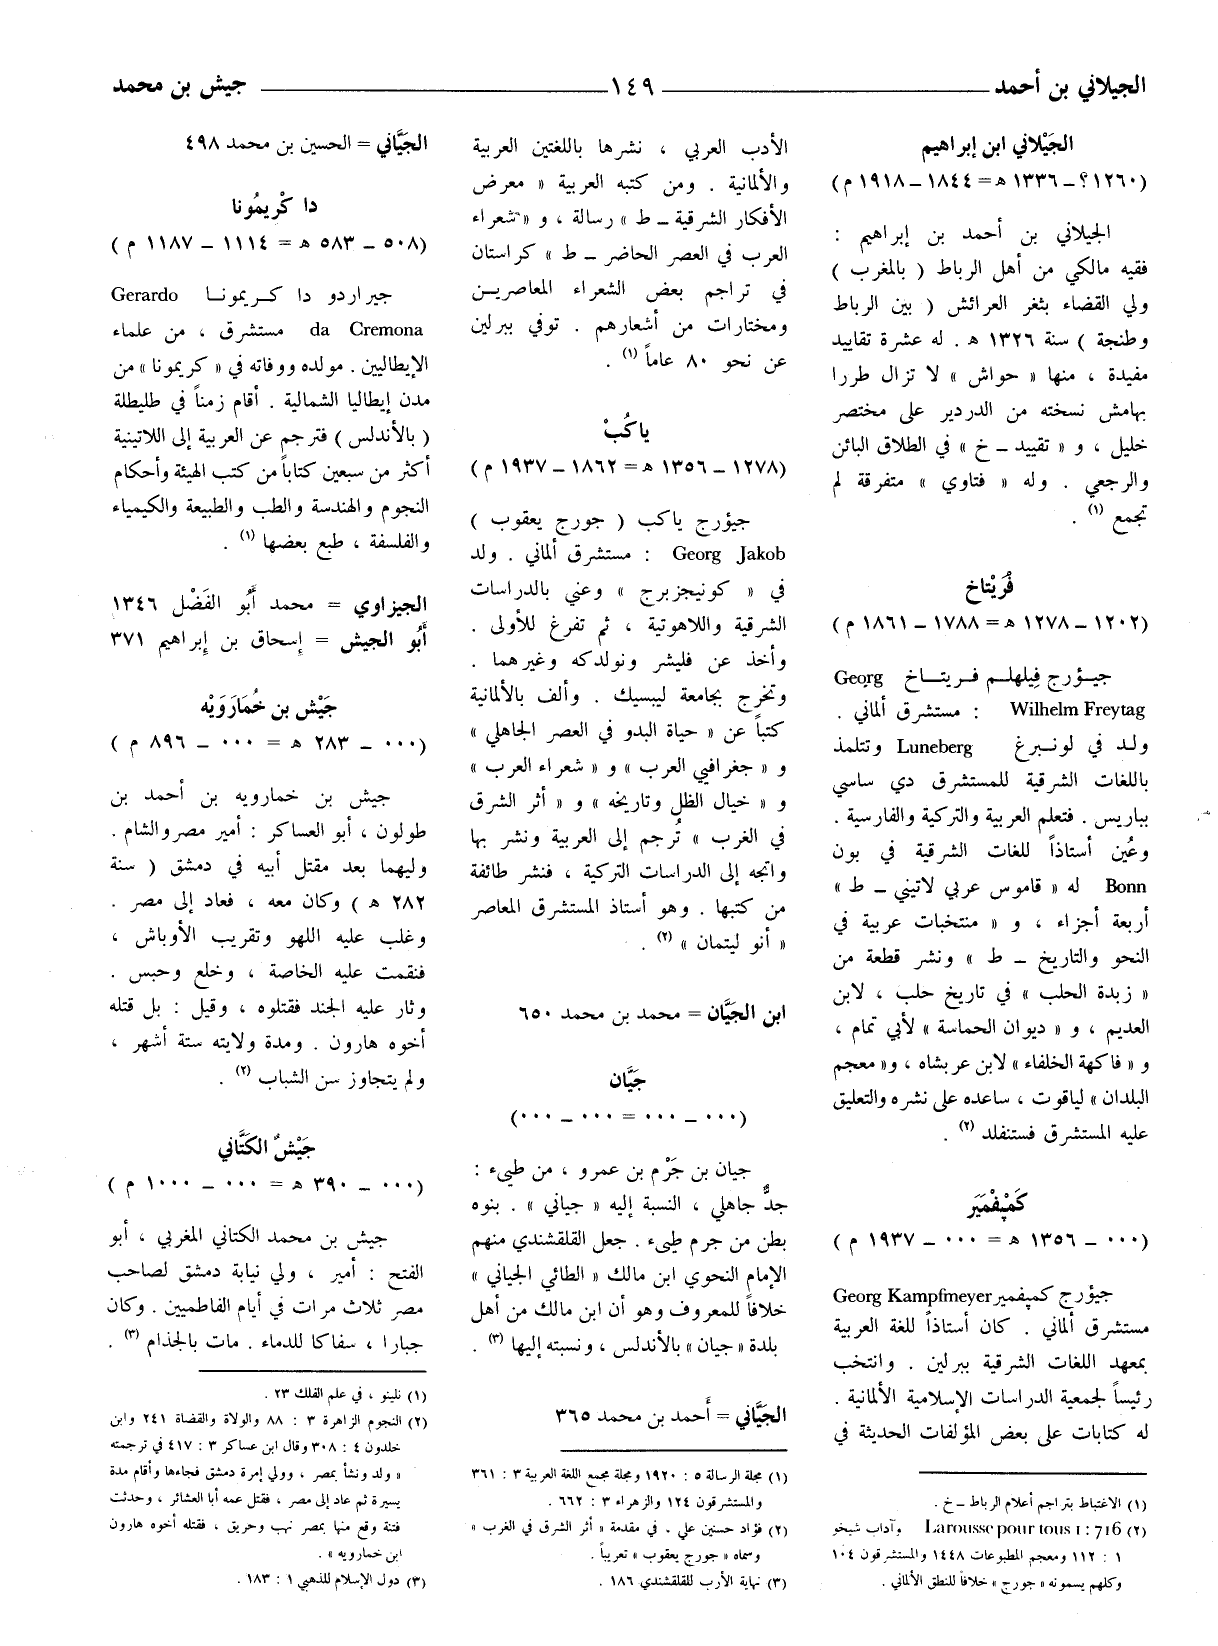 الجيلاني بن أحمد ١٤٩ جيش بن محمد
الجَيْلاني ابن إبراهيم
(١٢٦٠؟ ـ ١٣٣٦ هـ = ١٨٤٤ ـ ١٩١٨ م)
الجيلاني بن أحمد بن إبراهيم :
فقيه مالكي من أهل الرباط ( بالمغرب )
ولي القضاء بثغر العرائش ( بين الرباط
وطنجة ) سنة ١٣٢٦ هـ . له عشرة تقاييد
مفيدة ، منها « حواش » لا تزال طررا
بهامش نسخته من الدردير على مختصر
خليل ، و « تقييد ـ خ » في الطلاق البائن
والرجعي . وله « فتاوي » متفرقة لم
تجمع (١) .
فُرَيْتاخ
(١٢٠٢ ـ ١٢٧٨ هـ = ١٧٨٨ ـ ١٨٦١ م)
جيؤرج فيلهلم فريتاخ Georg
Wilhelm Freytag : مستشرق ألماني .
ولد في لونبرغ Luneberg وتتلمذ
باللغات الشرقية للمستشرق دي ساسي
بباريس . فتعلم العربية والتركية والفارسية .
وعُين أستاذاً للغات الشرقية في بون
Bonn له « قاموس عربي لاتيني ـ ط »
أربعة أجزاء ، و « منتخبات عربية في
النحو والتاريخ ـ ط » ونشر قطعة من
« زبدة الحلب » في تاريخ حلب ، لابن
العديم ، و « ديوان الحماسة » لأبي تمام ،
و « فاكهة الخلفاء » لابن عربشاه ، و« معجم
البلدان » لياقوت ، ساعده على نشره والتعليق
عليه المستشرق فستنفلد (٢) .
كَمْپْفْمَيَر
(٠٠٠ ـ ١٣٥٦ هـ = ٠٠٠ ـ ١٩٣٧ م)
جيؤرج كمپفمير Georg Kampfmeyer
مستشرق ألماني . كان أستاذاً للغة العربية
بمعهد اللغات الشرقية ببرلين . وانتخب
رئيساً لجمعية الدراسات الإسلامية الألمانية .
له كتابات على بعض المؤلفات الحديثة في
(١) الاغتباط بتراجم أعلام الرباط ـ خ .
(٢) Larousse pour tous 1 : 716 وآداب شيخو
١ : ١١٢ ومعجم المطبوعات ١٤٤٨ والمستشرقون ١٠٤
وكلهم يسمونه « جورج » خلافاً للنطق الألماني .
الأدب العربي ، نشرها باللغتين العربية
والألمانية . ومن كتبه العربية « معرض
الأفكار الشرقية ـ ط » رسالة ، و « شعراء
العرب في العصر الحاضر ـ ط » كراستان
في تراجم بعض الشعراء المعاصرين
ومختارات من أشعارهم . توفي ببرلين
عن نحو ٨٠ عاماً (١) .
ياكُبْ
(١٢٧٨ ـ ١٣٥٦ هـ = ١٨٦٢ ـ ١٩٣٧ م)
جيؤرج ياكب ( جورج يعقوب )
Georg Jakob : مستشرق ألماني . ولد
في « كونيجزبرج » وعني بالدراسات
الشرقية واللاهوتية ، ثم تفرغ للأولى .
وأخذ عن فليشر ونولدكه وغيرهما .
وتخرج بجامعة ليبسيك . وألف بالألمانية
كتباً عن « حياة البدو في العصر الجاهلي »
و « جغرافيي العرب » و « شعراء العرب »
و « خيال الظل وتاريخه » و « أثر الشرق
في الغرب » تُرجم إلى العربية ونشر بها
واتجه إلى الدراسات التركية ، فنشر طائفة
من كتبها . وهو أستاذ المستشرق المعاصر
« أنو ليتمان » (٢) .
ابن الجَيَّان = محمد بن محمد ٦٥٠
جَيَّان
(٠٠٠ ـ ٠٠٠ = ٠٠٠ ـ ٠٠٠)
جيان بن جَرْم بن عمرو ، من طيىء :
جدٌّ جاهلي ، النسبة إليه « جياني » . بنوه
بطن من جرم طيىء . جعل القلقشندي منهم
الإمام النحوي ابن مالك « الطائي الجياني »
خلافاً للمعروف وهو أن ابن مالك من أهل
بلدة « جيان » بالأندلس ، ونسبته إليها (٣) .
الجَيَّاني = أَحمد بن محمد ٣٦٥
(١) مجلة الرسالة ٥ : ١٩٢٠ ومجلة مجمع اللغة العربية ٣ : ٣٦١
والمستشرقون ١٢٤ والزهراء ٣ : ٦٦٢ .
(٢) فؤاد حسنين علي ، في مقدمة « أثر الشرق في الغرب »
وسماه « جورج يعقوب » تعريباً .
(٣) نهاية الأرب للقلقشندي ١٨٦ .
الجَيَّاني = الحسين بن محمد ٤٩٨
دا كْرِيمُونا
(٥٠٨ ـ ٥٨٣ هـ = ١١١٤ ـ ١١٨٧ م)
جيراردو دا كريمونا Gerardo
da Cremona مستشرق ، من علماء
الإيطاليين . مولده ووفاته في « كريمونا » من
مدن إيطاليا الشمالية . أقام زمناً في طليطلة
( بالأندلس ) فترجم عن العربية إلى اللاتينية
أكثر من سبعين كتاباً من كتب الهيئة وأحكام
النجوم والهندسة والطب والطبيعة والكيمياء
والفلسفة ، طبع بعضها (١) .
الجيزاوي = محمد أَبُو الفَضْل ١٣٤٦
أَبُو الجيش = إسحاق بن إبراهيم ٣٧١
جَيْش بن خُمَارَوَيْه
(٠٠٠ ـ ٢٨٣ هـ = ٠٠٠ ـ ٨٩٦ م)
جيش بن خمارويه بن أحمد بن
طولون ، أبو العساكر : أمير مصر والشام .
وليهما بعد مقتل أبيه في دمشق ( سنة
٢٨٢ هـ ) وكان معه ، فعاد إلى مصر .
وغلب عليه اللهو وتقريب الأوباش ،
فنقمت عليه الخاصة ، وخلع وحبس .
وثار عليه الجند فقتلوه ، وقيل : بل قتله
أخوه هارون . ومدة ولايته ستة أشهر ،
ولم يتجاوز سن الشباب (٢) .
جَيْشٌ الكَتَّاني
(٠٠٠ ـ ٣٩٠ هـ = ٠٠٠ ـ ١٠٠٠ م)
جيش بن محمد الكتاني المغربي ، أبو
الفتح : أمير ، ولي نيابة دمشق لصاحب
مصر ثلاث مرات في أيام الفاطميين . وكان
جبارا ، سفاكا للدماء . مات بالجذام (٣) .
(١) نلينو ، في علم الفلك ٢٣ .
(٢) النجوم الزاهرة ٣ : ٨٨ والولاة والقضاة ٢٤١ وابن
خلدون ٤ : ٣٠٨ وقال ابن عساكر ٣ : ٤١٧ في ترجمته
« ولد ونشأ بمصر ، وولي إمرة دمشق فجاءها وأقام مدة
يسيرة ثم عاد إلى مصر ، فقتل عمه أبا العشائر ، وحدثت
فتنة وقع منها بمصر نهب وحريق ، فقتله أخوه هارون
ابن خمارويه » .
(٣) دول الإسلام للذهبي ١ : ١٨٣ .